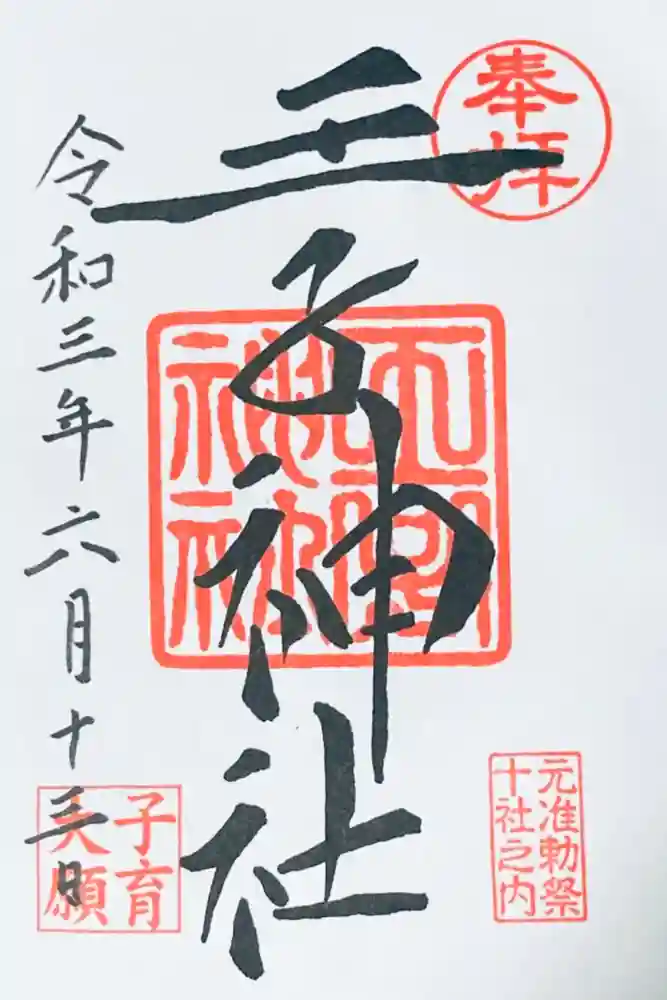 奉拝
王子神社
王子神社
元准勅祭
十社之内
令和三年六月十三日
子育
大願